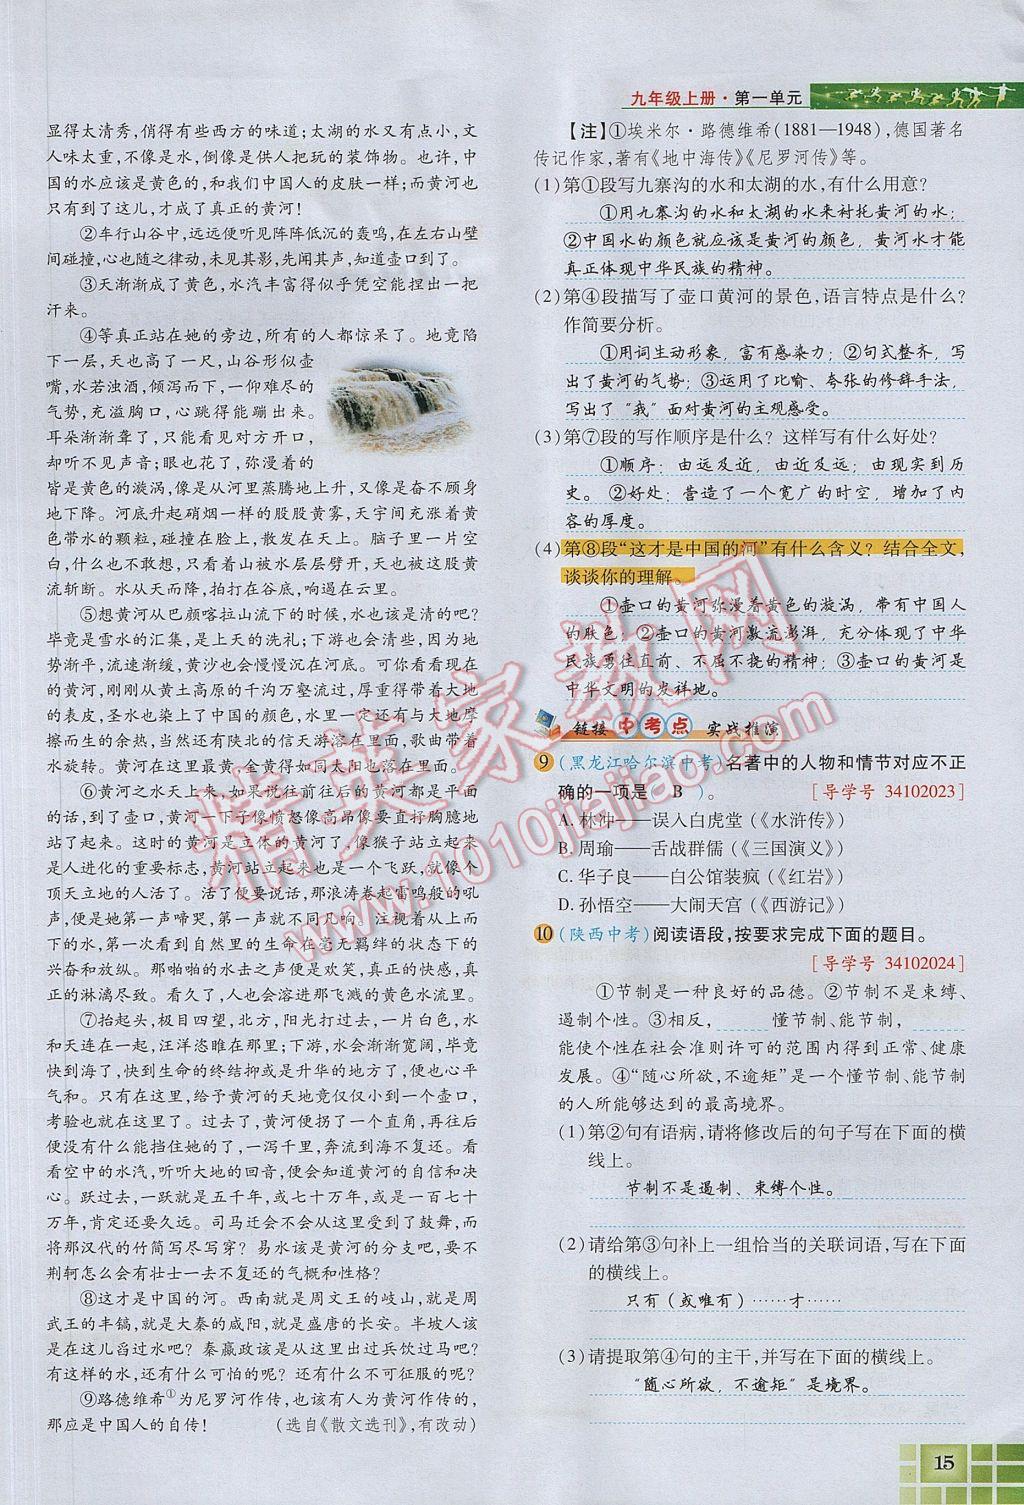 九年级上册·第一单元
显得太清秀,俏得有些西方的味道;太湖的水又有点小,文
人味太重,不像是水,仿佛像是供人把玩的装饰物。也许,中
国的水应该是黄色的,和我们中国人的皮肤一样;而黄河也
只有到了这儿,才成了真正的黄河!
②车行山谷中,远远便听见阵阵低沉的轰鸣,在左右山壁
间碰撞,心也随之律动,未见其影,先闻其声,知道壶口到了。
③天渐渐成了黄色,水汽丰富得似乎凭空能捏出一把
汗来。
④等真正站在她的旁边,所有的人都惊呆了。地竟陷
下一层,天也高了一尺,山谷形似壶
嘴,水若浊酒,倾泻而下,一仰难尽的
气势,充溢胸口,心跳得能蹦出来。
耳朵渐渐聋了,只能看见对方开口,
却听不见声音;眼也花了,弥漫着的
皆是黄色的漩涡,像是从河里蒸腾地上升,又像是奋不顾身
地下降。河底升起硝烟一样的股股黄雾,天宇间充斥着黄
色带水的颗粒,碰撞在脸上,散发在天上。脑子里一片空
白,什么也不敢想,只看着山被水层层劈开,也被这股黄
流斩断。水从天而降,拍打在谷底,响遏在云里。
⑤想黄河从巴颜喀拉山流下的时候,水也该是清的吧?
毕竟是雪水的汇集,是上天的洗礼;下游也会清的,因为地
势渐平,流速渐缓,黄沙也会慢慢沉在河底。可你看看现在
的黄河,刚刚从黄土高原的千沟万壑流过,厚重得带着大地
的表皮,圣水也染上了中国的颜色,奔流中有与大地摩
擦而生的余热,当然还有陕北的信天游溶在里面,歌曲带着
螺旋。黄河在这里最黄,金黄得如同回去阳也在里面。
⑥黄河之水天上来,如果说以往前往后的黄河都是平面
的话,到了壶口,黄河一下子像愤怒像高昂像要直抒胸臆地
站了起来。这时的黄河是立体的黄河了,像猴子站立起来
是人进化的重要标志,黄河站立起来也是一个飞跃,就像个
顶天立地的人活了。活了便要说话,那浪涛卷起雷鸣般的吼
声,便是她第一声啼哭,第一声就不同凡响。注视着从上而
下的水,似乎看到自然里的生命在毫无羁绊的状态下的
兴奋和放纵。那啪啪的水击便是欢笑,真正的快感,真
正的淋漓尽致。看久了,人也会溶进那飞溅的黄色水流里。
⑦抬起头,极目四望,北方,阳光打过去,一片白色,水
和天连在一起,汪洋恣睢在那里;下游,水会渐渐宽阔,毕竟
快到海了,快到生命的终结抑或是升华的地方,便也心平
气和。只有在这里,给予黄河的天地竟仅仅小到一个壶口,
考验也就在这里了。过去了,黄河便拐了一个直角,再往下
便没有什么能挡住她的了,一泻千里,奔流到海不复返。看
看空中的水汽,听听大地的回音,便会知道黄河的自信和决
心。跃过去,一跃就是五千年,或七十万年,或是一百七十
万年,肯定还要久远。司马迁会不会从这里受到了鼓舞,而
将那汉代的竹简写尽写穿?易水该是黄河的分支吧,要不
荆轲怎么会有壮士一去不复还的气概和性格?
⑧这才是中国的河。西南就是周文王的岐山,就是周
武王的丰镐,就是大秦的咸阳,就是盛唐的长安。半坡人该
是在这儿舀过水吧?秦嬴政该是从这里出过兵饮过马吧?
有这样的水,还有什么可怕的呢?还有什么不可征服的呢?
⑨路德维希①为尼罗河作传,也该有人为黄河作传的,
那应是中国人的自传!(选自《散文选刊》,有改动)
【注】①埃米尔·路德维希(1881—1948),德国著名
传记作家,著有《地中海传》《尼罗河传》等。
(1)第①段写九寨沟的水和太湖的水,有什么用意?
①用九寨沟的水和太湖的水来衬托黄河的水;
②中国水的颜色就应该是黄河的颜色,黄河水才能
真正体现中华民族的精神。
(2)第④段描写了壶口黄河的景色,语言特点是什么?
作简要分析。
①用词生动形象,富有感染力;②句式整齐,写
出了黄河的气势;③运用了比喻、夸张的修辞手法,
写出了“我”面对黄河的主观感受。
(3)第⑦段的写作顺序是什么?这样写有什么好处?
①顺序:由远及近,由近及远;由现实到历
史。②好处:营造了一个宽广的时空,增加了内
容的厚度。
(4)第⑧段“这才是中国的河”有什么含义?结合全文,
谈谈你的理解。
①壶口的黄河弥漫着黄色的漩涡,带有中国人
的肤色;②壶口的黄河激流澎湃,充分体现了中华
民族勇往直前、不屈不挠的精神;③壶口的黄河是
中华文明的发祥地。
链接 中考点 实战推演
9 (黑龙江哈尔滨中考)名著中的人物和情节对应不正
确的一项是(B)。[导学号 34102023]
A.林冲——误入白虎堂(《水浒传》)
B.周瑜——舌战群儒(《三国演义》)
C.华子良——白公馆装疯(《红岩》)
D.孙悟空——大闹天宫(《西游记》)
10 (陕西中考)阅读语段,按要求完成下面的题目。
[导学号 34102024]
①节制是一种良好的品德。②节制不是束缚、
遏制个性。③相反, 懂节制、能节制,
能使个性在社会准则许可的范围内得到正常、健康
发展。④“随心所欲,不逾矩”是一个懂节制、能节制
的人所能够达到的最高境界。
(1)第②句有语病,请将修改后的句子写在下面的横
线上。
节制不是遏制、束缚个性。
(2)请给第③句补上一组恰当的关联词语,写在下面
的横线上。
只有(或唯有)……才……
(3)请提取第④句的主干,并写在下面的横线上。
“随心所欲,不逾矩”是境界。
15
精英家教网
www.1010jiajiao.com